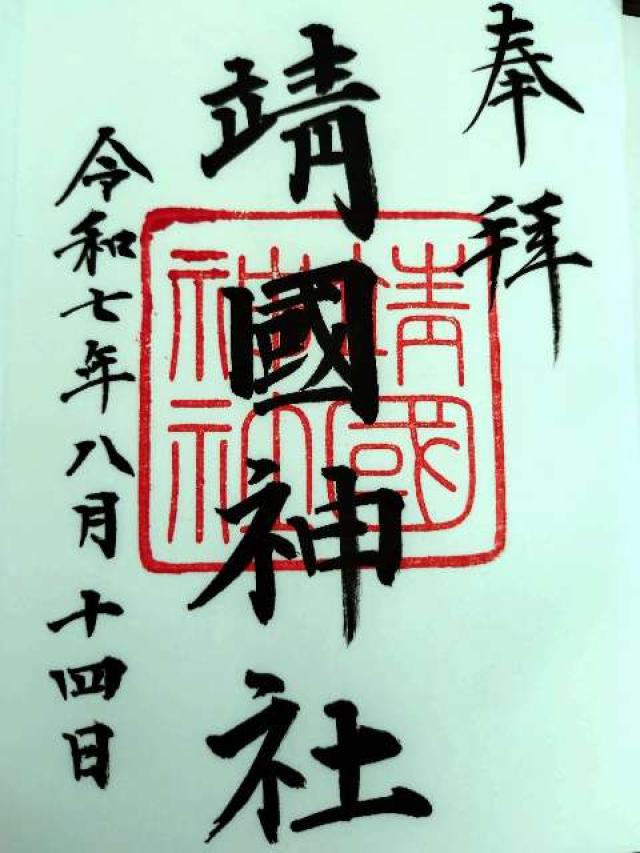 奉拝
靖國神社
靖國神社
令和七年八月十四日